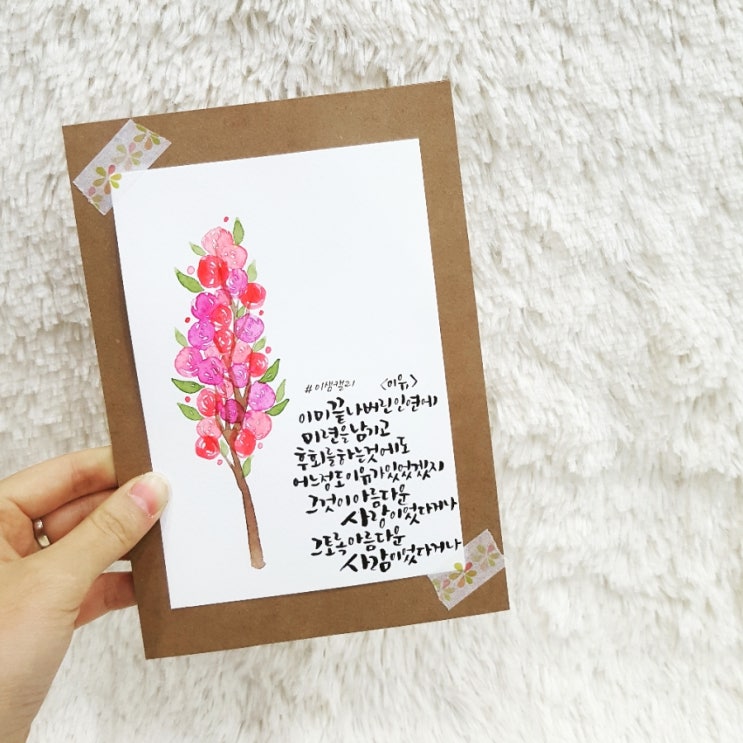 #이샘캘리 <이유>
이미 끝나버린 인연에
미련을 남기고
후회를 하는 것에도
어느정도 이유가 있었겠지
그것이 아름다운
사랑이었다거나
그토록 아름다운
사람이었다거나